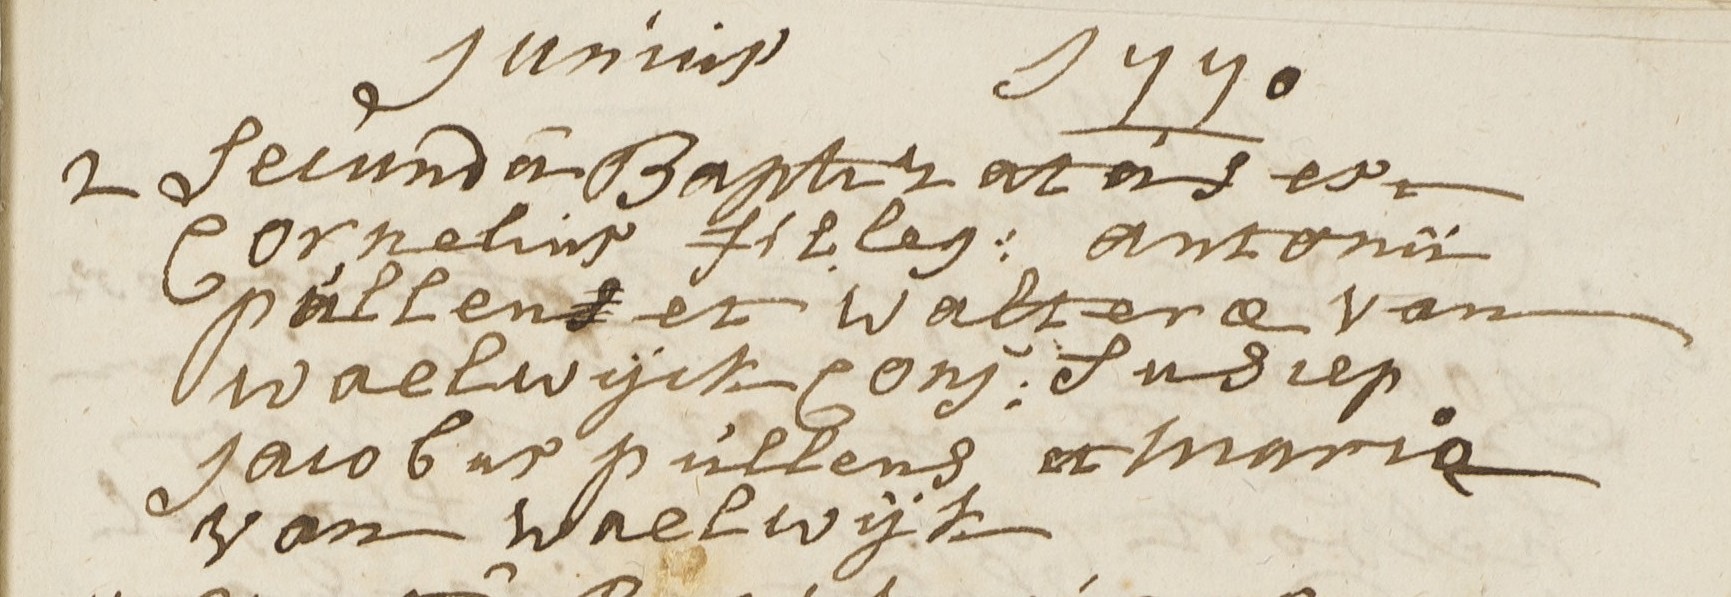 Junius 1770
2 Secunda Baptizatus est
Cornelius fil: leg: antonii
pullens et walteræ van
waelwijck Conj: Suscep
Jacobus pullens et maria
van waelwijk